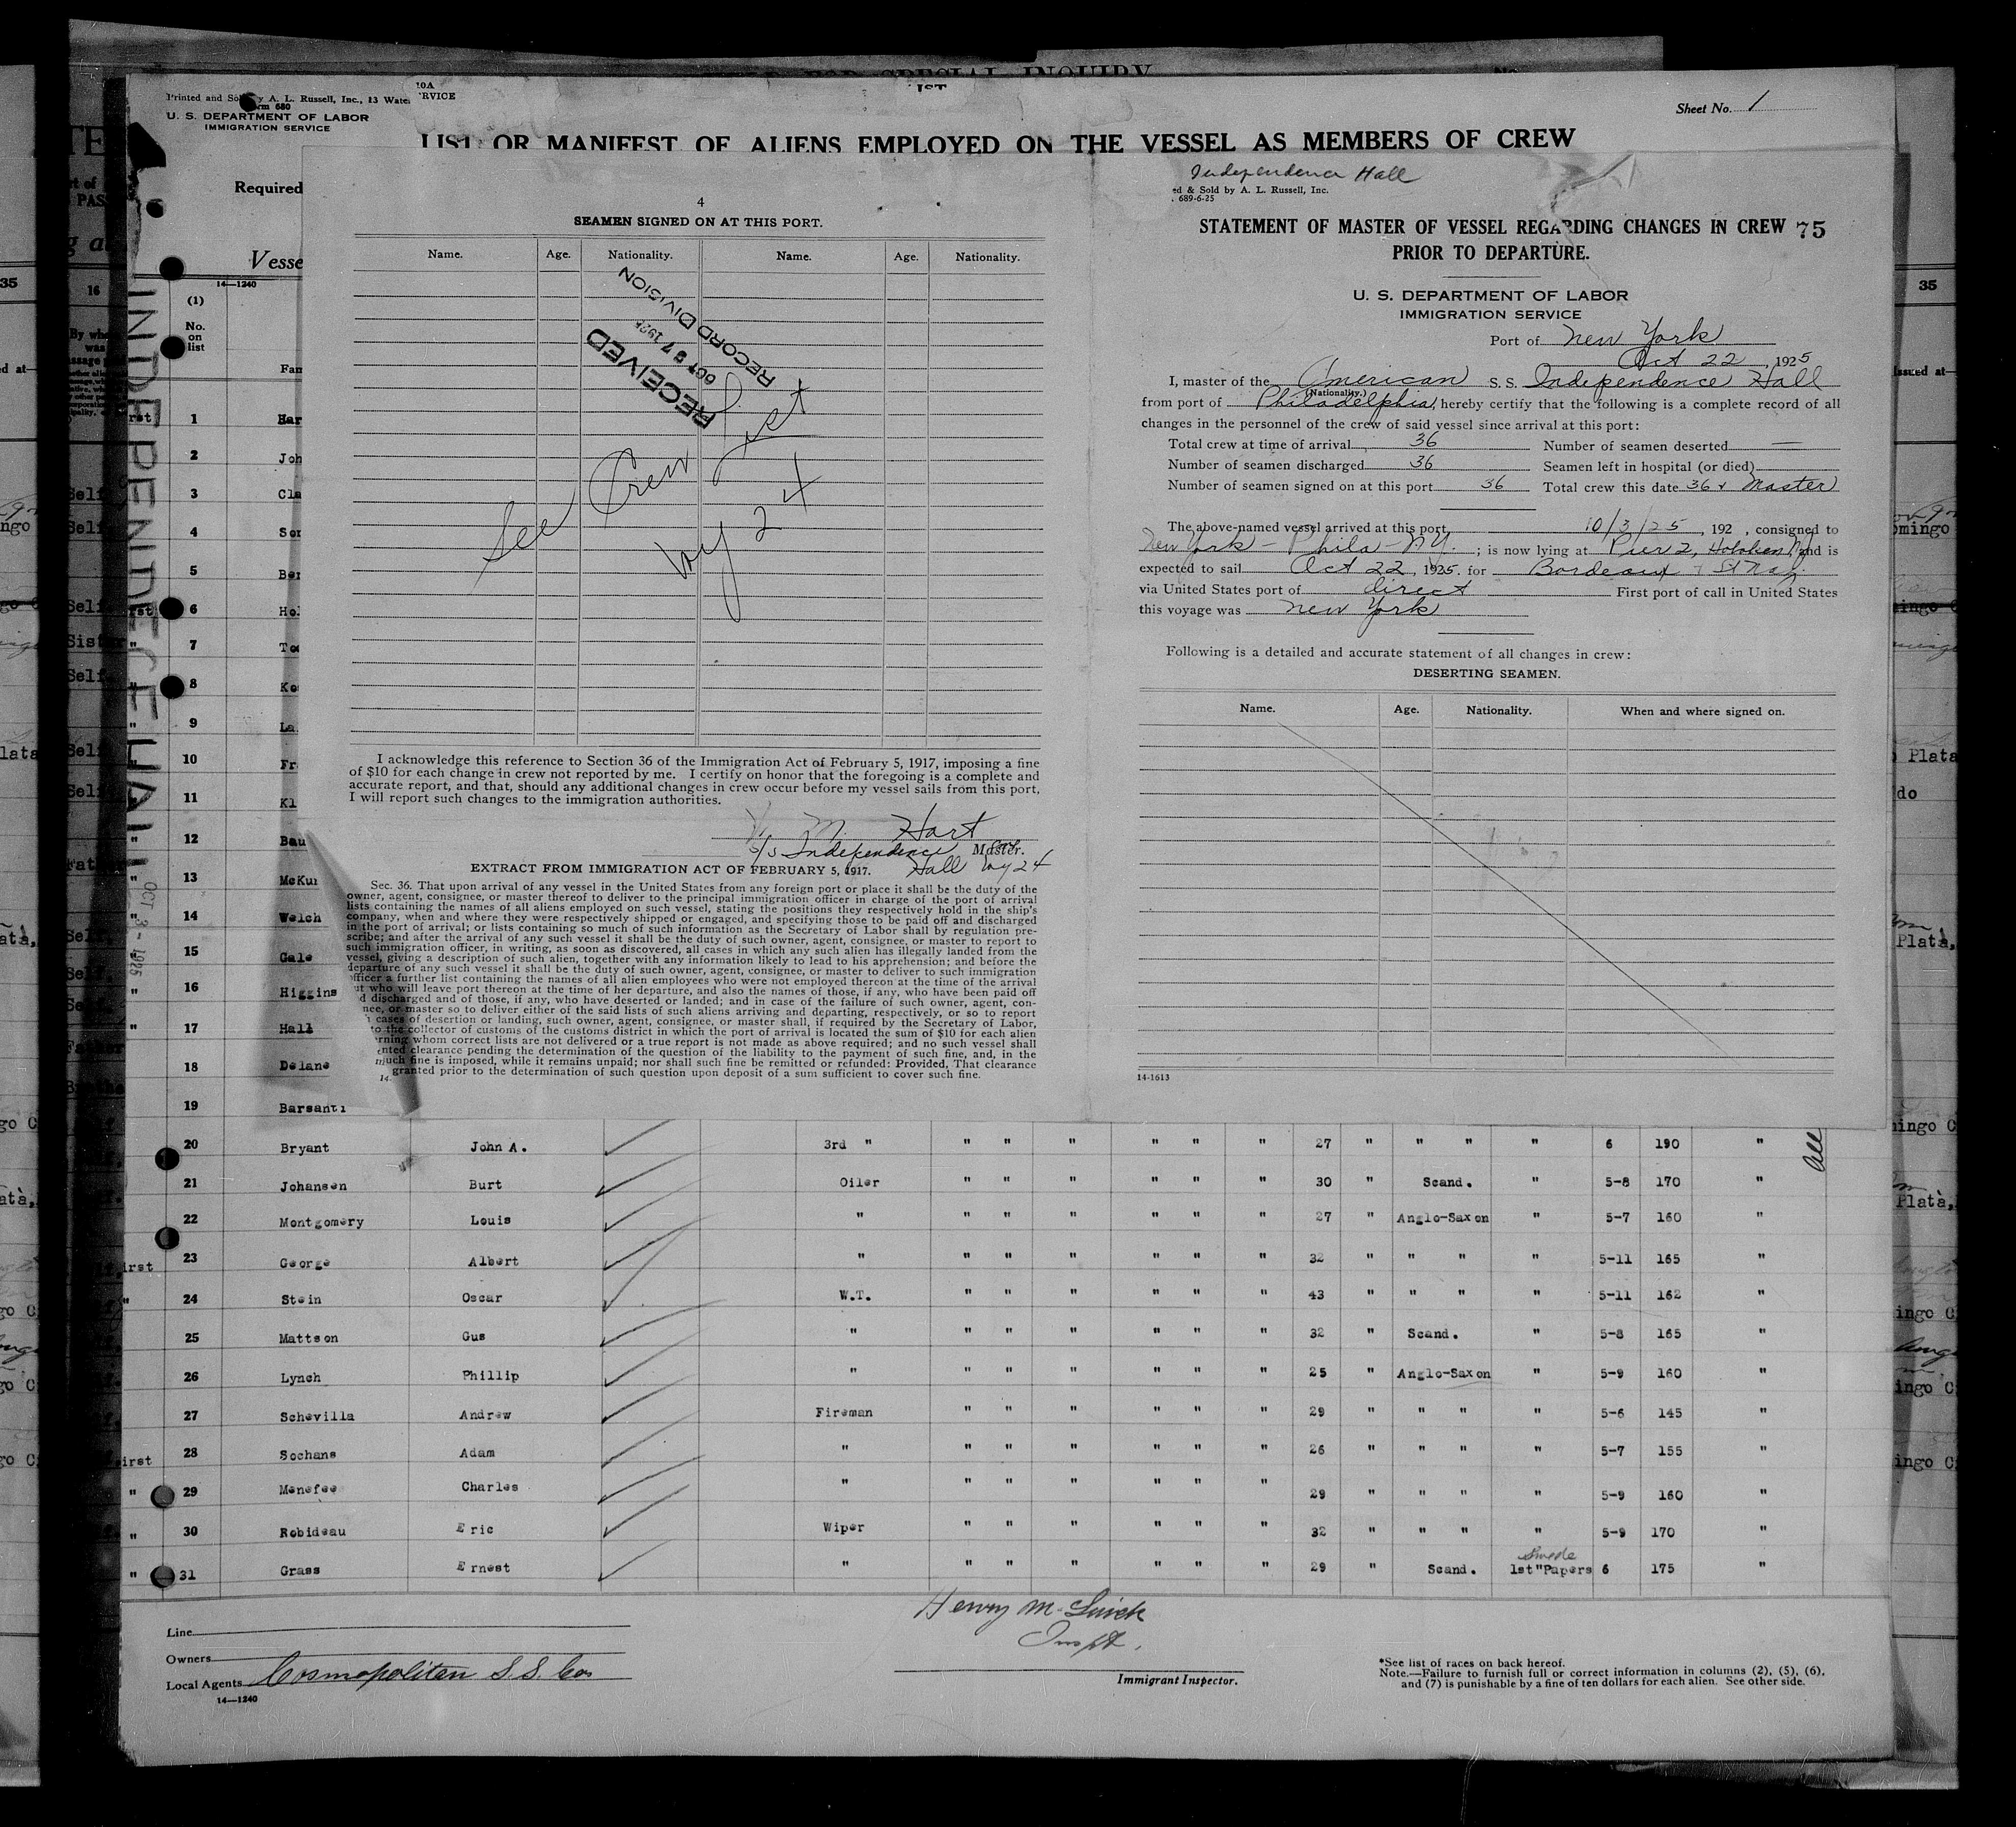 SPECIAL INQUIRY
Printed and Sold by A. L. Russell, Inc., 13 Water
Form 680
U. S. DEPARTMENT OF LABOR
IMMIGRATION SERVICE
Sheet No. 1
LIST OR MANIFEST OF ALIENS EMPLOYED ON THE VESSEL AS MEMBERS OF CREW
Required
Vesse
14—1240
(1)
No.
on
list
INDEPENDENCE HALL
OCT 3 - 1925
4
SEAMEN SIGNED ON AT THIS PORT.
Name. Age. Nationality. Name. Age. Nationality.
RECEIVED
RECORD DIVISION
See Crew List
Voy 24
I acknowledge this reference to Section 36 of the Immigration Act of February 5, 1917, imposing a fine
of $10 for each change in crew not reported by me. I certify on honor that the foregoing is a complete and
accurate report, and that, should any additional changes in crew occur before my vessel sails from this port,
I will report such changes to the immigration authorities.
M. Hart
S/S Independence Master.
Hall Voy 24
EXTRACT FROM IMMIGRATION ACT OF FEBRUARY 5, 1917.
Sec. 36. That upon arrival of any vessel in the United States from any foreign port or place it shall be the duty of the
owner, agent, consignee, or master thereof to deliver to the principal immigration officer in charge of the port of arrival
lists containing the names of all aliens employed on such vessel, stating the positions they respectively hold in the ship's
company, when and where they were respectively shipped or engaged, and specifying those to be paid off and discharged
in the port of arrival; or lists containing so much of such information as the Secretary of Labor shall by regulation pre-
scribe; and after the arrival of any such vessel it shall be the duty of such owner, agent, consignee, or master to report to
such immigration officer, in writing, as soon as discovered, all cases in which any such alien has illegally landed from the
vessel, giving a description of such alien, together with any information likely to lead to his apprehension; and before the
departure of any such vessel it shall be the duty of such owner, agent, consignee, or master to deliver to such immigration
officer a further list containing the names of all alien employees who were not employed thereon at the time of the arrival
but who will leave port thereon at the time of her departure, and also the names of those, if any, who have been paid off
d discharged and of those, if any, who have deserted or landed; and in case of the failure of such owner, agent, con-
nee, or master so to deliver either of the said lists of such aliens arriving and departing, respectively, or so to report
cases of desertion or landing, such owner, agent, consignee, or master shall, if required by the Secretary of Labor,
to the collector of customs of the customs district in which the port of arrival is located the sum of $10 for each alien
rning whom correct lists are not delivered or a true report is not made as above required; and no such vessel shall
nted clearance pending the determination of the question of the liability to the payment of such fine, and, in the
such fine is imposed, while it remains unpaid; nor shall such fine be remitted or refunded: Provided, That clearance
granted prior to the determination of such question upon deposit of a sum sufficient to cover such fine.
Independence Hall
ed & Sold by A. L. Russell, Inc.
689-6-25
STATEMENT OF MASTER OF VESSEL REGARDING CHANGES IN CREW 75
PRIOR TO DEPARTURE.
U. S. DEPARTMENT OF LABOR
IMMIGRATION SERVICE
Port of New York
Oct 22, 1925
I, master of the American S. S. Independence Hall
(Nationality.)
from port of Philadelphia, hereby certify that the following is a complete record of all
changes in the personnel of the crew of said vessel since arrival at this port:
Total crew at time of arrival 36 Number of seamen deserted —
Number of seamen discharged 36 Seamen left in hospital (or died)
Number of seamen signed on at this port 36 Total crew this date 36 + Master
The above-named vessel arrived at this port, 10/3/25, 192 , consigned to
New York - Phila - N.Y. ; is now lying at Pier 2, Hoboken and is
expected to sail Oct 22, 1925. for Bordeaux + St Naz.
via United States port of direct First port of call in United States
this voyage was New York
Following is a detailed and accurate statement of all changes in crew:
DESERTING SEAMEN.
Name. Age. Nationality. When and where signed on.
14-1613
1 Har
2 Joh
3 Cla
4 Sor
5 Ber
6 Hol
7 Too
8 Ko
9 La
10 Fr
11 Kl
12 Bau
13 McKu
14 Welch
15 Gale
16 Higgins
17 Hall
18 Delane
19 Barsanti
20 Bryant John A. 3rd " " " " " " " 27 " " " " 6 190 "
21 Johansen Burt Oiler " " " " " " 30 " Scand. " 5-8 170 "
22 Montgomery Louis " " " " " " " 27 " Anglo-Saxon " 5-7 160 "
23 George Albert " " " " " " " 32 " " " " 5-11 165 "
24 Stein Oscar W.T. " " " " " " 43 " " " " 5-11 162 "
25 Mattson Gus " " " " " " " 32 " Scand. " 5-8 165 "
26 Lynch Phillip " " " " " " " 25 " Anglo-Saxon " 5-9 160 "
27 Schevilla Andrew Fireman " " " " " " 29 " " " " 5-6 145 "
28 Sochans Adam " " " " " " " 26 " " " " 5-7 155 "
29 Menefee Charles " " " " " " " 29 " " " " 5-9 160 "
30 Robideau Eric Wiper " " " " " " 32 " " " " 5-9 170 "
31 Grass Ernest " " " " " " " 29 " Scand. Swede 1st "Papers 6 175 "
Line
Owners
Local Agents Cosmopolitan S.S. Co
14—1240
Henry M.
Inspt.
Immigrant Inspector.
*See list of races on back hereof.
Note.—Failure to furnish full or correct information in columns (2), (5), (6),
and (7) is punishable by a fine of ten dollars for each alien. See other side.